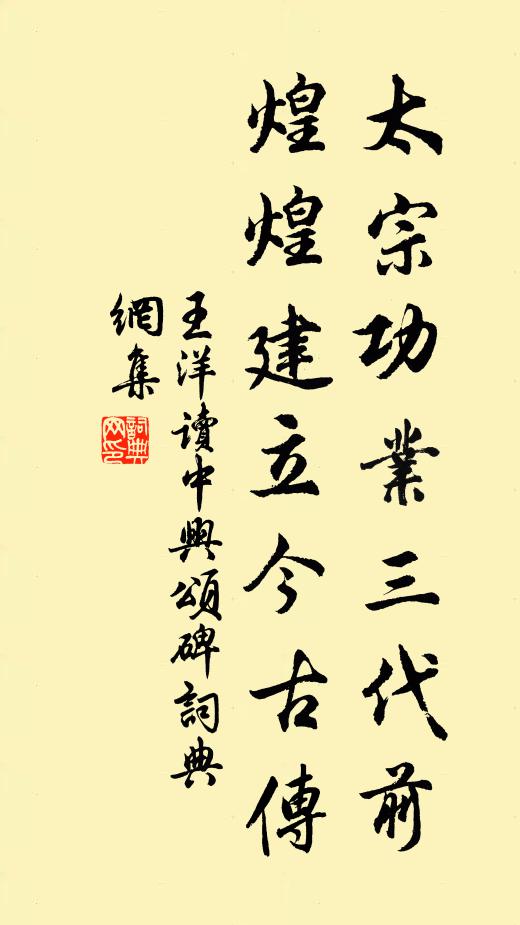 太宗功業三代前
煌煌建立今古傳
王洋讀中興頌碑詞典
網集
詞典
网印